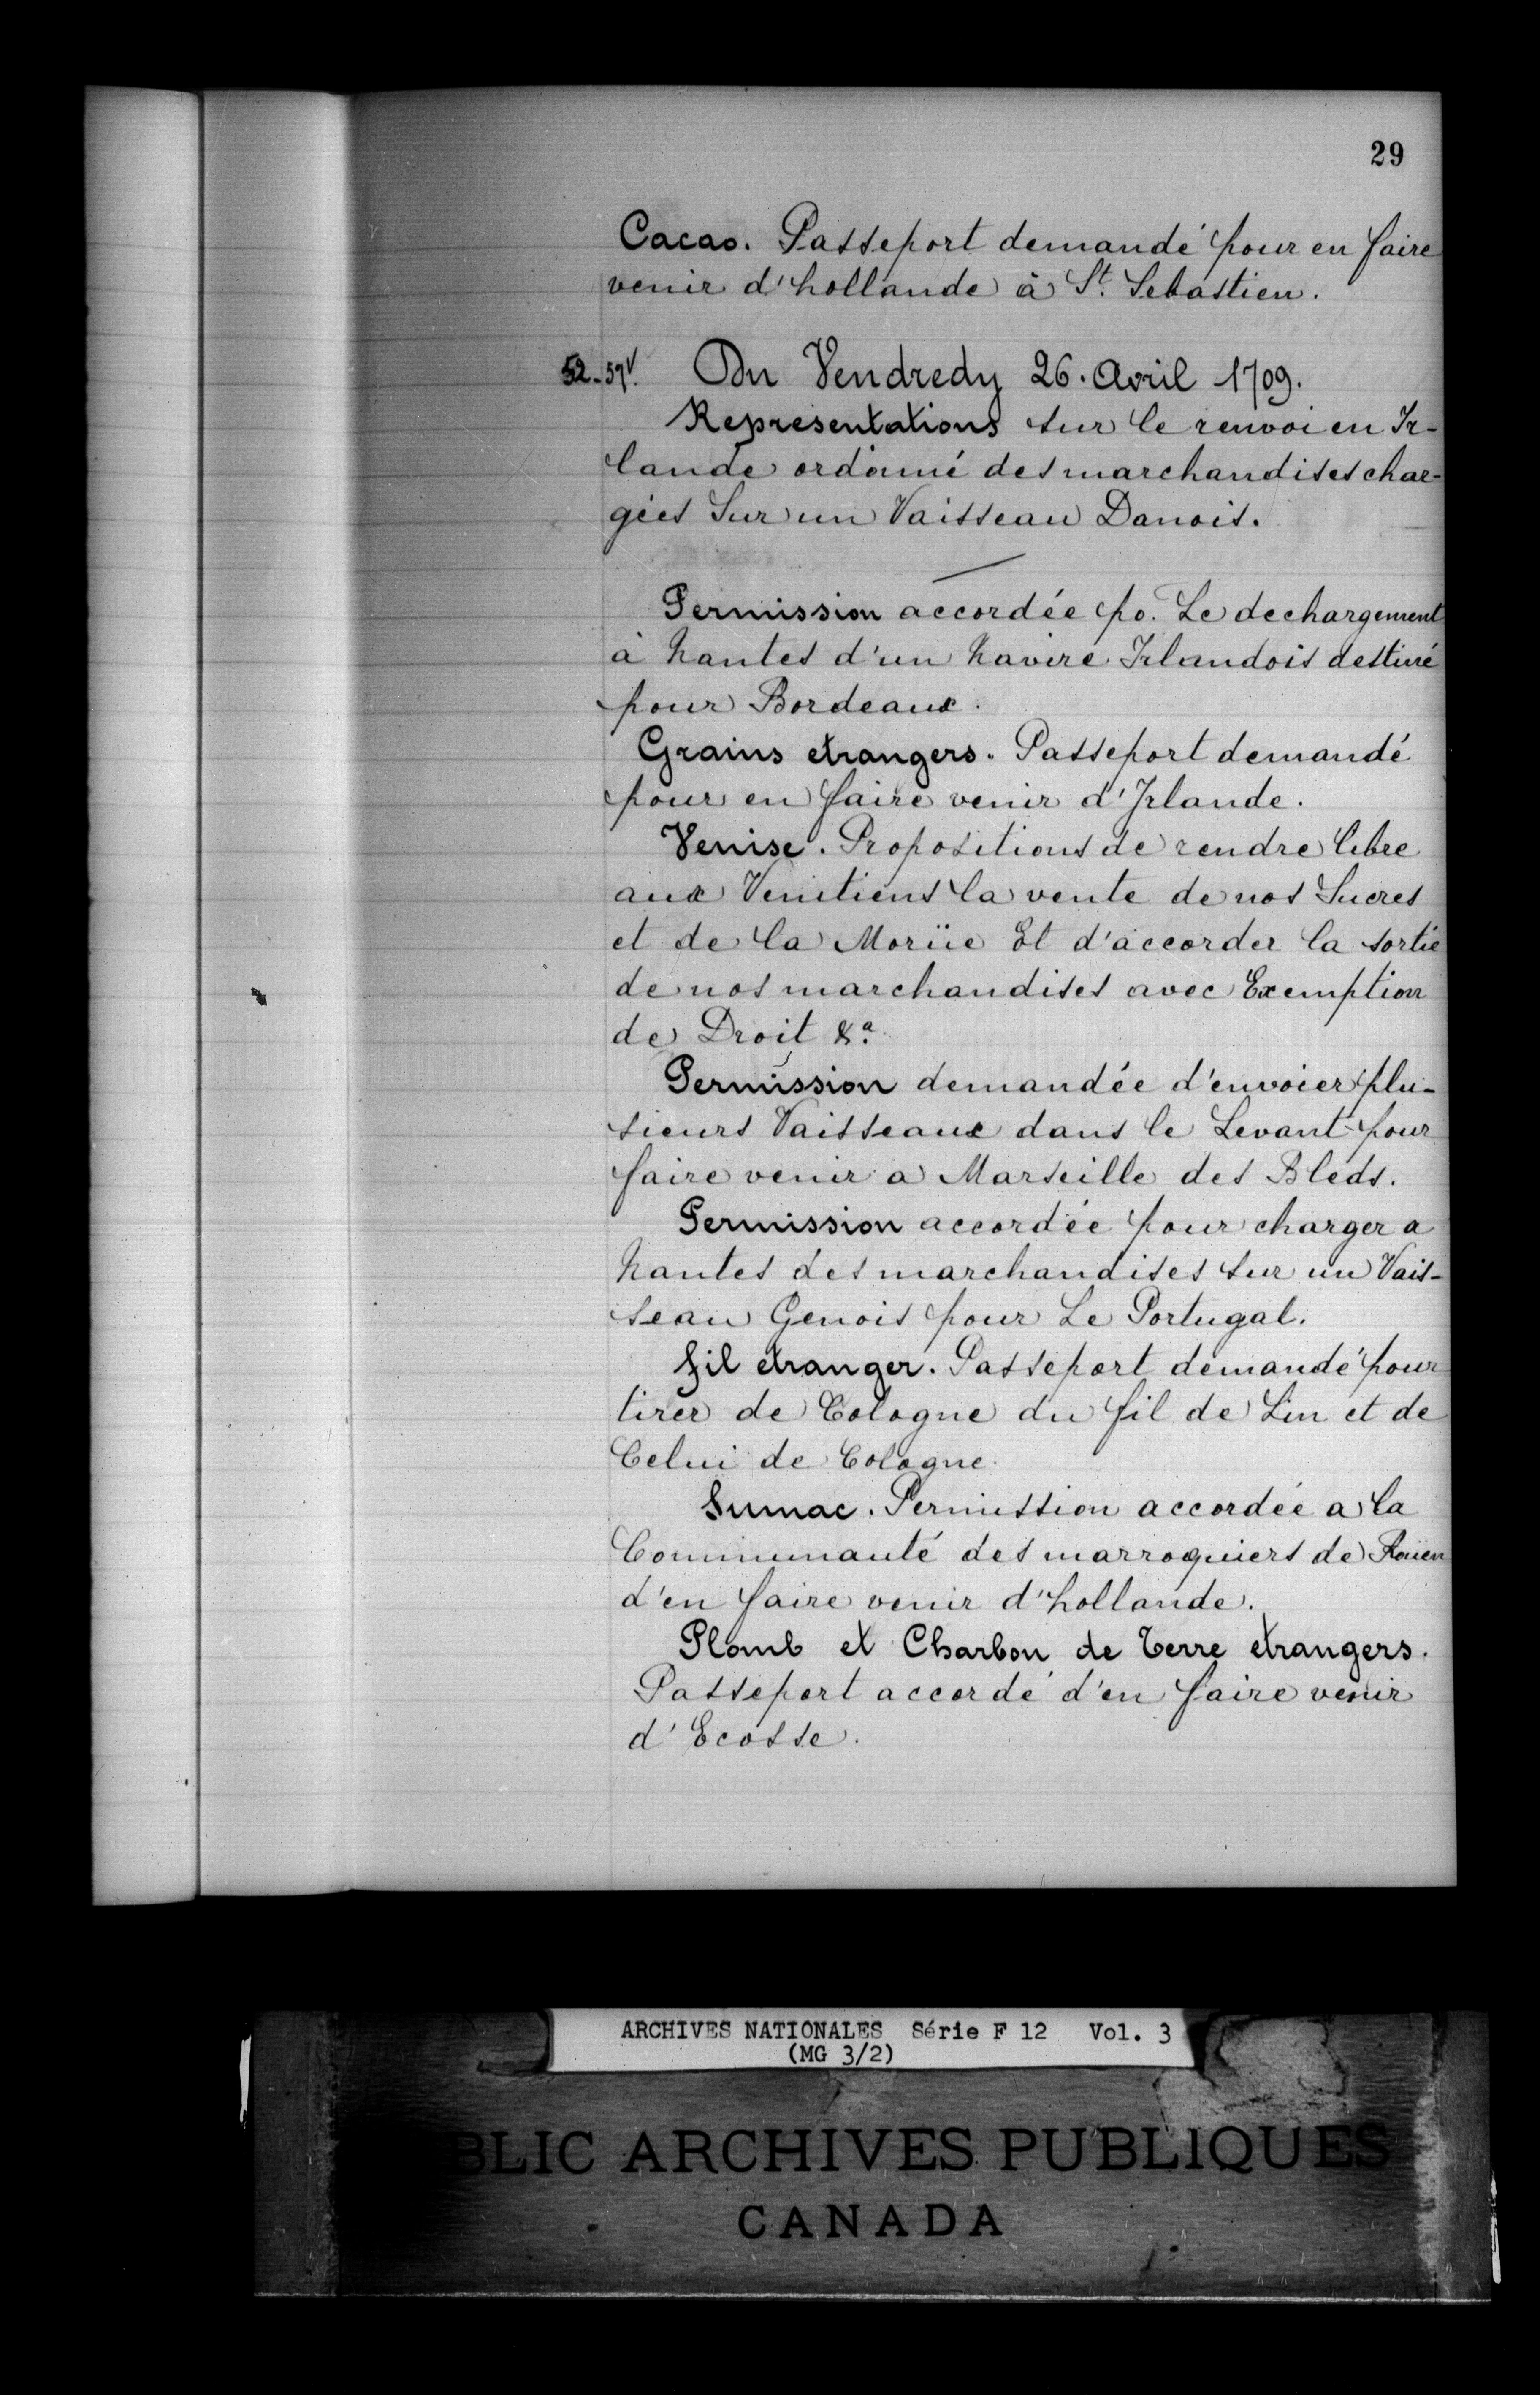 29
Cacao. Passeport demandé pour en faire
venir d'hollande à St. Sebastien.
52-57v. Du Vendredy 26. Avril 1709.
Representations sur le renvoi en Ir-
lande ordonné des marchandises char-
gées Sur un Vaisseau Danois.
Permission accordée po. Le dechargement
à Nantes d'un Navire Irlandois destiné
pour Bordeaux.
Grains etrangers. Passeport demandé
pour en faire venir d'Irlande.
Venise. Propositions de rendre libre
aux Venitiens la vente de nos Sucres
et de la Moriie Et d'accorder la sortie
de nos marchandises avec Exemption
de Droit &a.
Permission demandée d'envoier plu-
sieurs Vaisseaux dans le Levant pour
faire venir a Marseille des Bleds.
Permission accordée pour charger a
Nantes des marchandises sur un Vais-
seau Genois pour Le Portugal.
fil etranger. Passeport demandé pour
tirer de Cologne du fil de Lin et de
Celui de Cologne.
Sumac. Permission accordée a la
Communauté des marroquiers de Roüen
d'en faire venir d'hollande.
Plomb et Charbon de Terre etrangers.
Passeport accordé d'en faire venir
d'Ecosse.
ARCHIVES NATIONALES Série F 12 Vol. 3
(MG 3/2)
BLIC ARCHIVES PUBLIQUES
CANADA